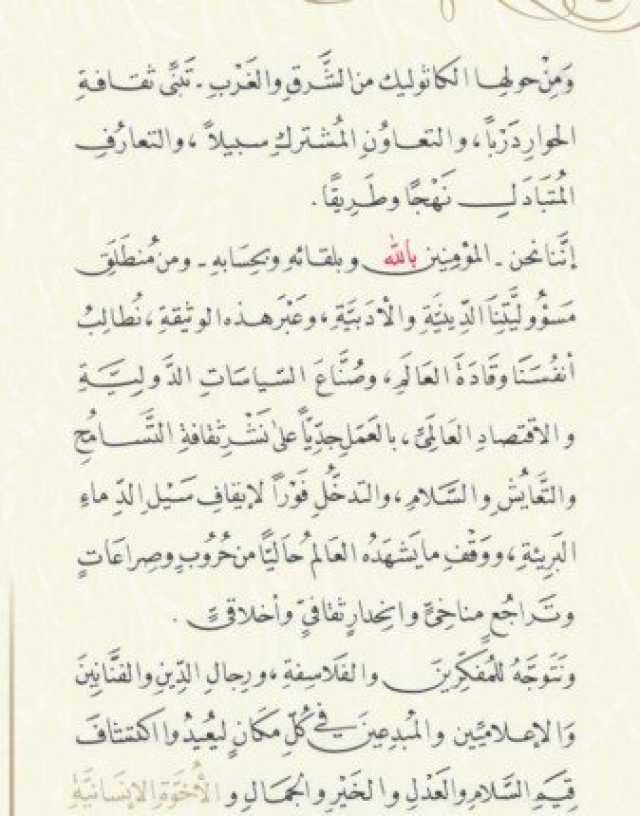 وَمِنْ حولِها الكاثوليك من الشَّرقِ والغَرْبِ - تَبَنِّي ثقافةِ
الحوارِ دَرْبًا، والتعاوُنِ المُشتركِ سبيلاً، والتعارُفِ
المُتَبَادَلِ نَهْجًا وطَرِيقًا.
إنَّنا نحن - المؤمِنِين بالله وبلقائهِ وبحِسَابهِ - ومن مُنطَلَقِ
مَسؤُوليَّتِنَا الدِّينيَّةِ والأدَبيَّةِ، وعَبْرَ هذه الوثيقةِ، نُطالِبُ
أنفُسَنَا وقَادَةَ العَالَمِ، وصُنَّاعَ السِّياساتِ الدَّوليَّةِ
والاقتصادِ العَالَمِيِّ، بالعَمَلِ جدِّيًّا على نَشْرِ ثقافةِ التَّسَامُحِ
والتَّعَايُشِ والسَّلامِ، والتدخُّلِ فَوْرًا لإيقافِ سَيْلِ الدِّماءِ
البَرِيئةِ، ووَقْفِ ما يَشهَدُه العالمُ حَاليًّا من حُرُوبٍ وصِراعَاتٍ
وتَراجُعٍ مناخِيٍّ وانحِدارٍ ثقافيٍّ وأخلاقيٍّ.
ونَتَوجَّهُ للمُفكِّرينَ والفَلاسِفةِ، ورِجالِ الدِّينِ والفَنَّانِينَ
وَالإعلاميِّين والمُبدِعينَ في كُلِّ مكانٍ ليُعِيدُوا اكتشافَ
قِيَمِ السَّلامِ والعَدْلِ والخَيْرِ والجَمَالِ والأُخوَّةِ الإنسَانيَّةِ